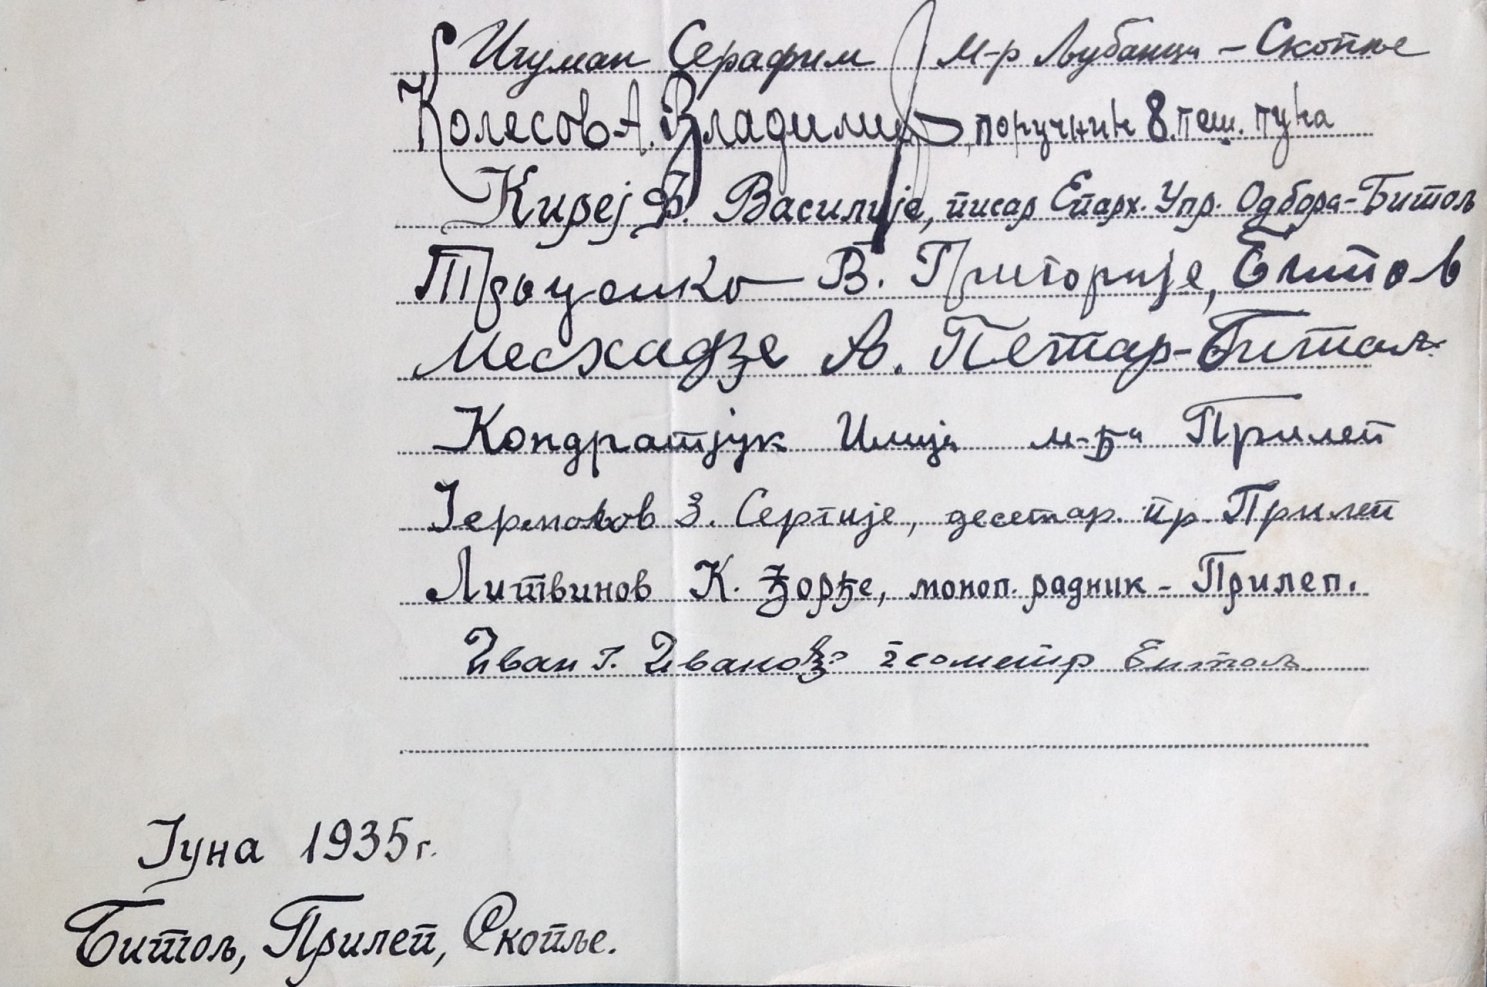 Игуман Серафим М-р Љубанци – Скопље
Колесов А. Владимир, поручник 8. пеш. пука
Киреј Ф. Василије, писар Епарх. Упр. Одбора – Битољ
Троценко В. Григорије, Битољ
Месхадзе А. Петар – Битољ
Кондратјук Илија Прилеп
Јермолов З. Сергије, десетар пр. Прилеп
Литвинов К. Ђорђе, моноп. радник – Прилеп.
Иван Г. Иванов геометр Битољ
Јуна 1935 г.
Битољ, Прилеп, Скопље.